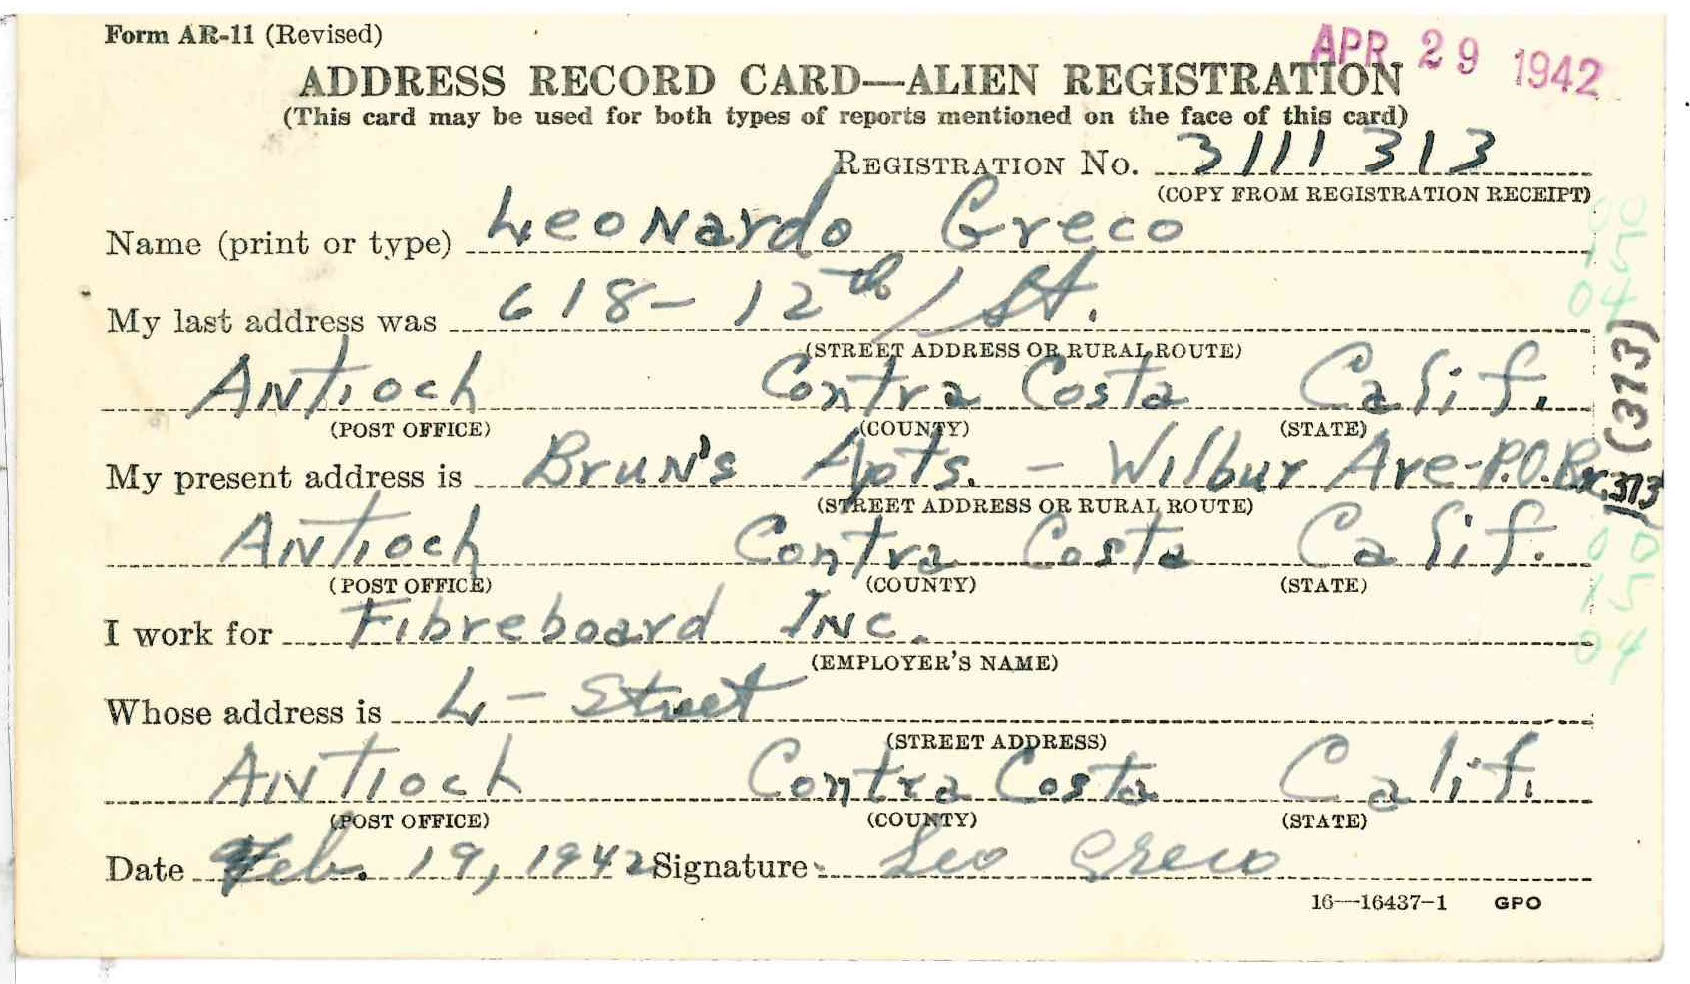 Form AR-11 (Revised)
APR 29 1942
ADDRESS RECORD CARD—ALIEN REGISTRATION
(This card may be used for both types of reports mentioned on the face of this card)
REGISTRATION NO. 3111313
(COPY FROM REGISTRATION RECEIPT)
Name (print or type) Leonardo Greco
My last address was 618-12th St.
(STREET ADDRESS OR RURAL ROUTE)
Antioch Contra Costa Calif.
(POST OFFICE) (COUNTY) (STATE)
My present address is Brun's Apts. - Wilbur Ave-P.O.Bx.373
(373)
(STREET ADDRESS OR RURAL ROUTE)
Antioch Contra Costa Calif.
(POST OFFICE) (COUNTY) (STATE)
I work for Fibreboard Inc.
(EMPLOYER'S NAME)
Whose address is L-Street
(STREET ADDRESS)
Antioch Contra Costa Calif.
(POST OFFICE) (COUNTY) (STATE)
Date Feb. 19, 1942 Signature Leo Greco
16—16437-1 GPO
00
15
04
00
15
04